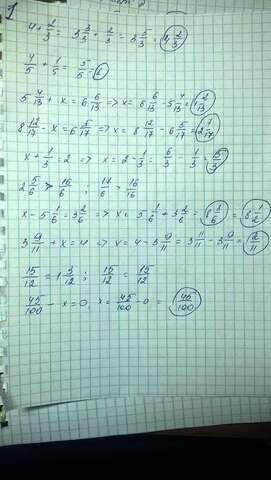 4 + 1/3 = 3 3/3 + 2/3 = 3 5/3 = 4 2/3
4/5 + 1/5 = 5/5 = 1
5 4/13 + x = 6 6/13 => x = 6 6/13 - 5 4/13 = 1 2/13
8 12/17 - x = 6 5/17 => x = 8 12/17 - 6 5/17 = 2 7/17
x + 1/3 = 2 => x = 2 - 1/3 = 6/3 - 1/3 = 5/3
2 5/6 > 16/6 ; 17/6 > 16/6
x - 5 1/6 = 3 2/6 => x = 5 1/6 + 3 2/6 = 8 1/2
3 9/11 + x = 4 => x = 4 - 3 9/11 = 3 11/11 - 3 9/11 = 2/11
15/12 = 1 3/12 ; 15/12 = 15/12
45/100 - x = 0, x = 45/100 - 0 = 45/100